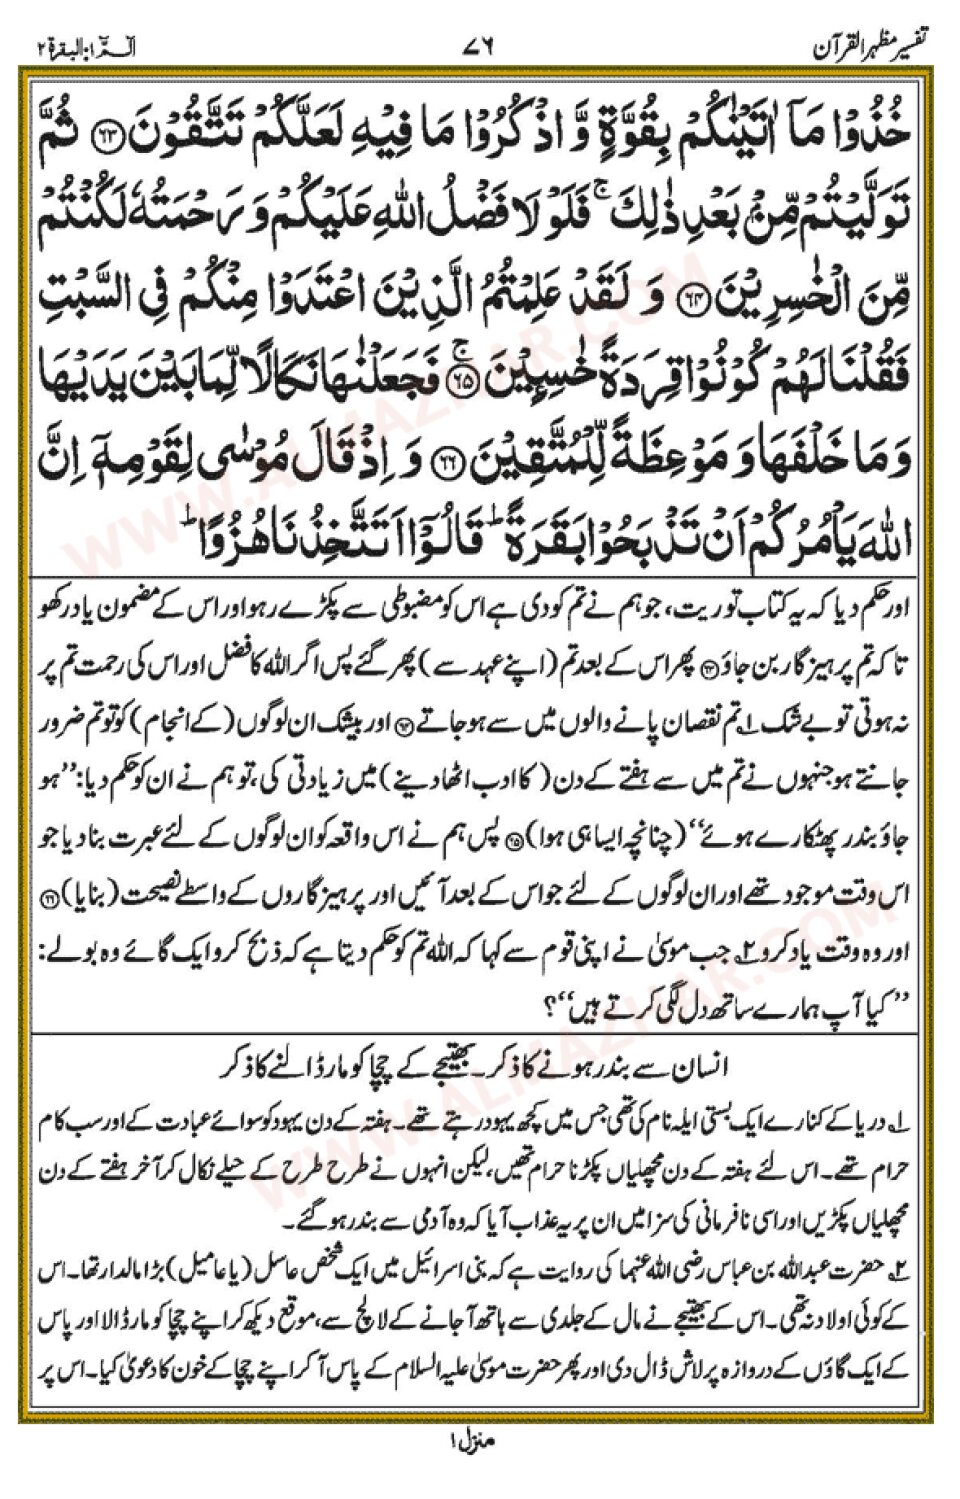 تفسیر مظہر القرآن ۷۶ الٓمّٓ ۱: البقرۃ ۲
خُذُوْا مَآ اٰتَيْنٰكُمْ بِقُوَّةٍ وَّ اذْكُرُوْا مَا فِيْهِ لَعَلَّكُمْ تَتَّقُوْنَ ﴿۶۳﴾ ثُمَّ
تَوَلَّيْتُمْ مِّنْۢ بَعْدِ ذٰلِكَ ۚ فَلَوْ لَا فَضْلُ اللّٰهِ عَلَيْكُمْ وَ رَحْمَتُهٗ لَكُنْتُمْ
مِّنَ الْخٰسِرِيْنَ ﴿۶۴﴾ وَ لَقَدْ عَلِمْتُمُ الَّذِيْنَ اعْتَدَوْا مِنْكُمْ فِى السَّبْتِ
فَقُلْنَا لَهُمْ كُوْنُوْا قِرَدَةً خٰسِـِٕيْنَ ﴿۶۵﴾ ۚ فَجَعَلْنٰهَا نَكَالًا لِّمَا بَيْنَ يَدَيْهَا
وَ مَا خَلْفَهَا وَ مَوْعِظَةً لِّلْمُتَّقِيْنَ ﴿۶۶﴾ وَ اِذْ قَالَ مُوْسٰى لِقَوْمِهٖٓ اِنَّ
اللّٰهَ يَاْمُرُكُمْ اَنْ تَذْبَحُوْا بَقَرَةً ؕ قَالُوْٓا اَتَتَّخِذُنَا هُزُوًا ؕ
اور حکم دیا کہ یہ کتاب توریت، جو ہم نے تم کو دی ہے اس کو مضبوطی سے پکڑے رہو اور اس کے مضمون یاد رکھو
تا کہ تم پرہیزگار بن جاؤ ﴿۶۳﴾ پھر اس کے بعد تم (اپنے عہد سے) پھر گئے پس اگر اللہ کا فضل اور اس کی رحمت تم پر
نہ ہوتی تو بے شک ۱؎ تم نقصان پانے والوں میں سے ہو جاتے ﴿۶۴﴾ اور بیشک ان لوگوں (کے انجام) کو تو تم ضرور
جانتے ہو جنہوں نے تم میں سے ہفتے کے دن (کا ادب اٹھا دینے) میں زیادتی کی، تو ہم نے ان کو حکم دیا: ’’ہو
جاؤ بندر پھٹکارے ہوئے‘‘ (چنانچہ ایسا ہی ہوا) ﴿۶۵﴾ پس ہم نے اس واقعہ کو ان لوگوں کے لئے عبرت بنا دیا جو
اس وقت موجود تھے اور ان لوگوں کے لئے جو اس کے بعد آئیں اور پرہیزگاروں کے واسطے نصیحت (بنایا) ﴿۶۶﴾
اور وہ وقت یاد کرو ۲؎ جب موسیٰ نے اپنی قوم سے کہا کہ اللہ تم کو حکم دیتا ہے کہ ذبح کرو ایک گائے وہ بولے:
’’کیا آپ ہمارے ساتھ دل لگی کرتے ہیں‘‘؟
انسان سے بندر ہونے کا ذکر۔ بھتیجے کے چچا کو مار ڈالنے کا ذکر
۱؎ دریا کے کنارے ایک بستی ایلہ نام کی تھی جس میں کچھ یہود رہتے تھے۔ ہفتہ کے دن یہود کو سوائے عبادت کے اور سب کام
حرام تھے۔ اس لئے ہفتہ کے دن مچھلیاں پکڑنا حرام تھیں، لیکن انہوں نے طرح طرح کے حیلے نکال کر آخر ہفتے کے دن
مچھلیاں پکڑیں اور اسی نافرمانی کی سزا میں ان پر یہ عذاب آیا کہ وہ آدمی سے بندر ہو گئے۔
۲؎ حضرت عبداللہ بن عباس رضی اللہ عنہما کی روایت ہے کہ بنی اسرائیل میں ایک شخص عاسل (یا عامیل) بڑا مالدار تھا۔ اس
کے کوئی اولاد نہ تھی۔ اس کے بھتیجے نے مال کے جلدی سے ہاتھ آ جانے کے لالچ سے، موقع دیکھ کر اپنے چچا کو مار ڈالا اور پاس
کے ایک گاؤں کے دروازہ پر لاش ڈال دی اور پھر حضرت موسیٰ علیہ السلام کے پاس آ کر اپنے چچا کے خون کا دعویٰ کیا۔ اس پر
منزل ۱
WWW.ALMAZHAR.COM
WWW.ALMAZHAR.COM